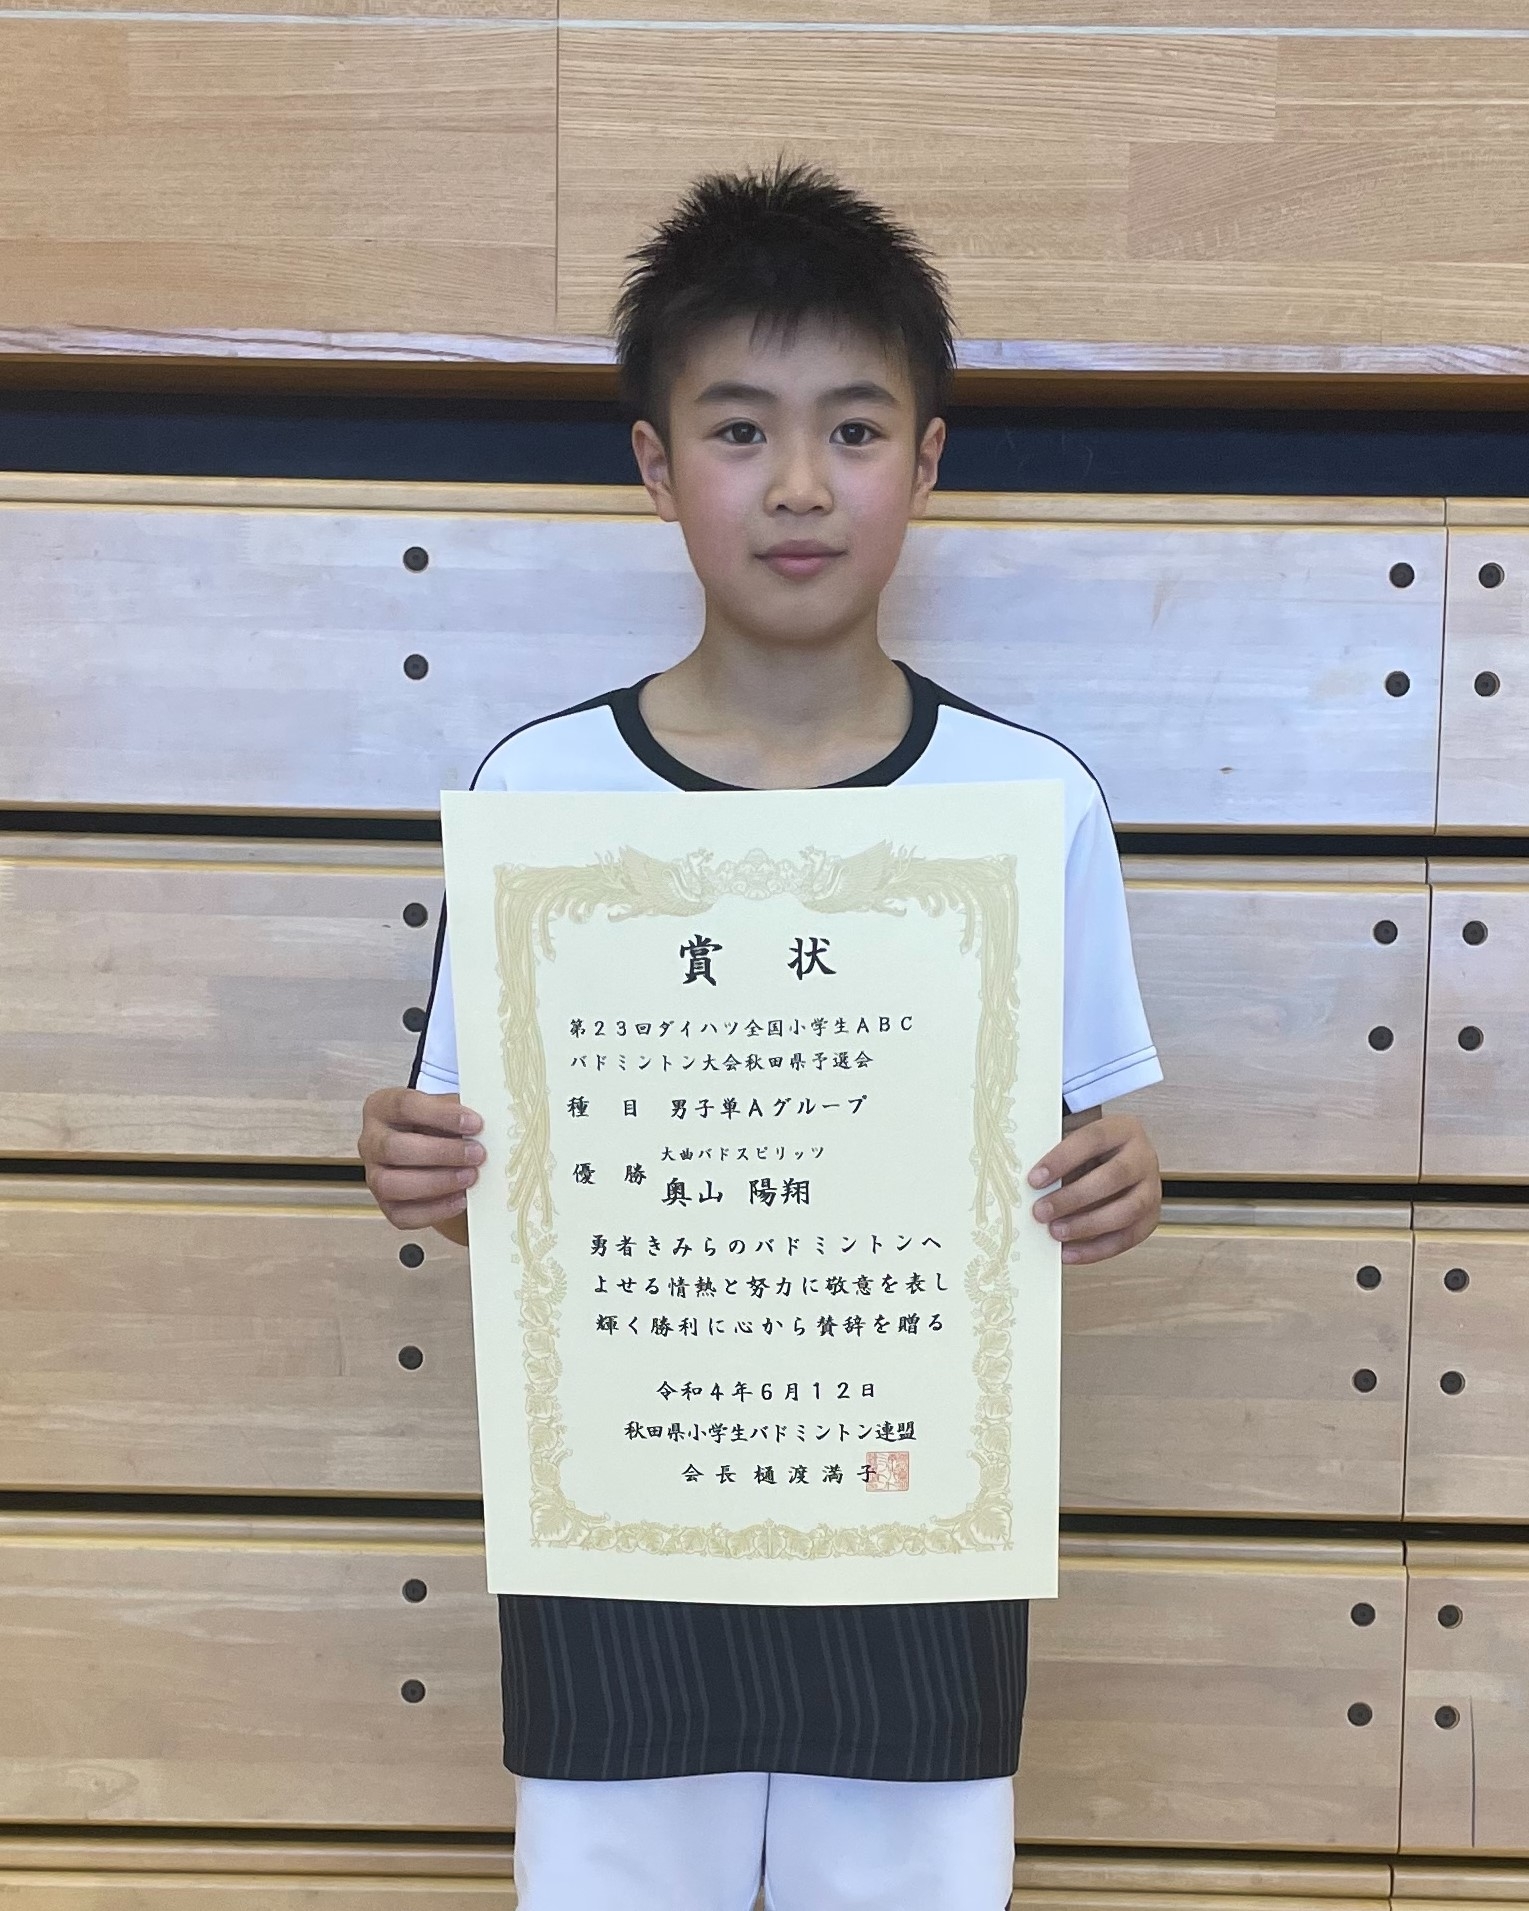 賞 状
第23回ダイハツ全国小学生ABC
バドミントン大会秋田県予選会
種 目 男子単Aグループ
大曲バドスピリッツ
優 勝 奥山 陽翔
勇者きみらのバドミントンへ
よせる情熱と努力に敬意を表し
輝く勝利に心から賛辞を贈る
令和4年6月12日
秋田県小学生バドミントン連盟
会長 樋渡満子